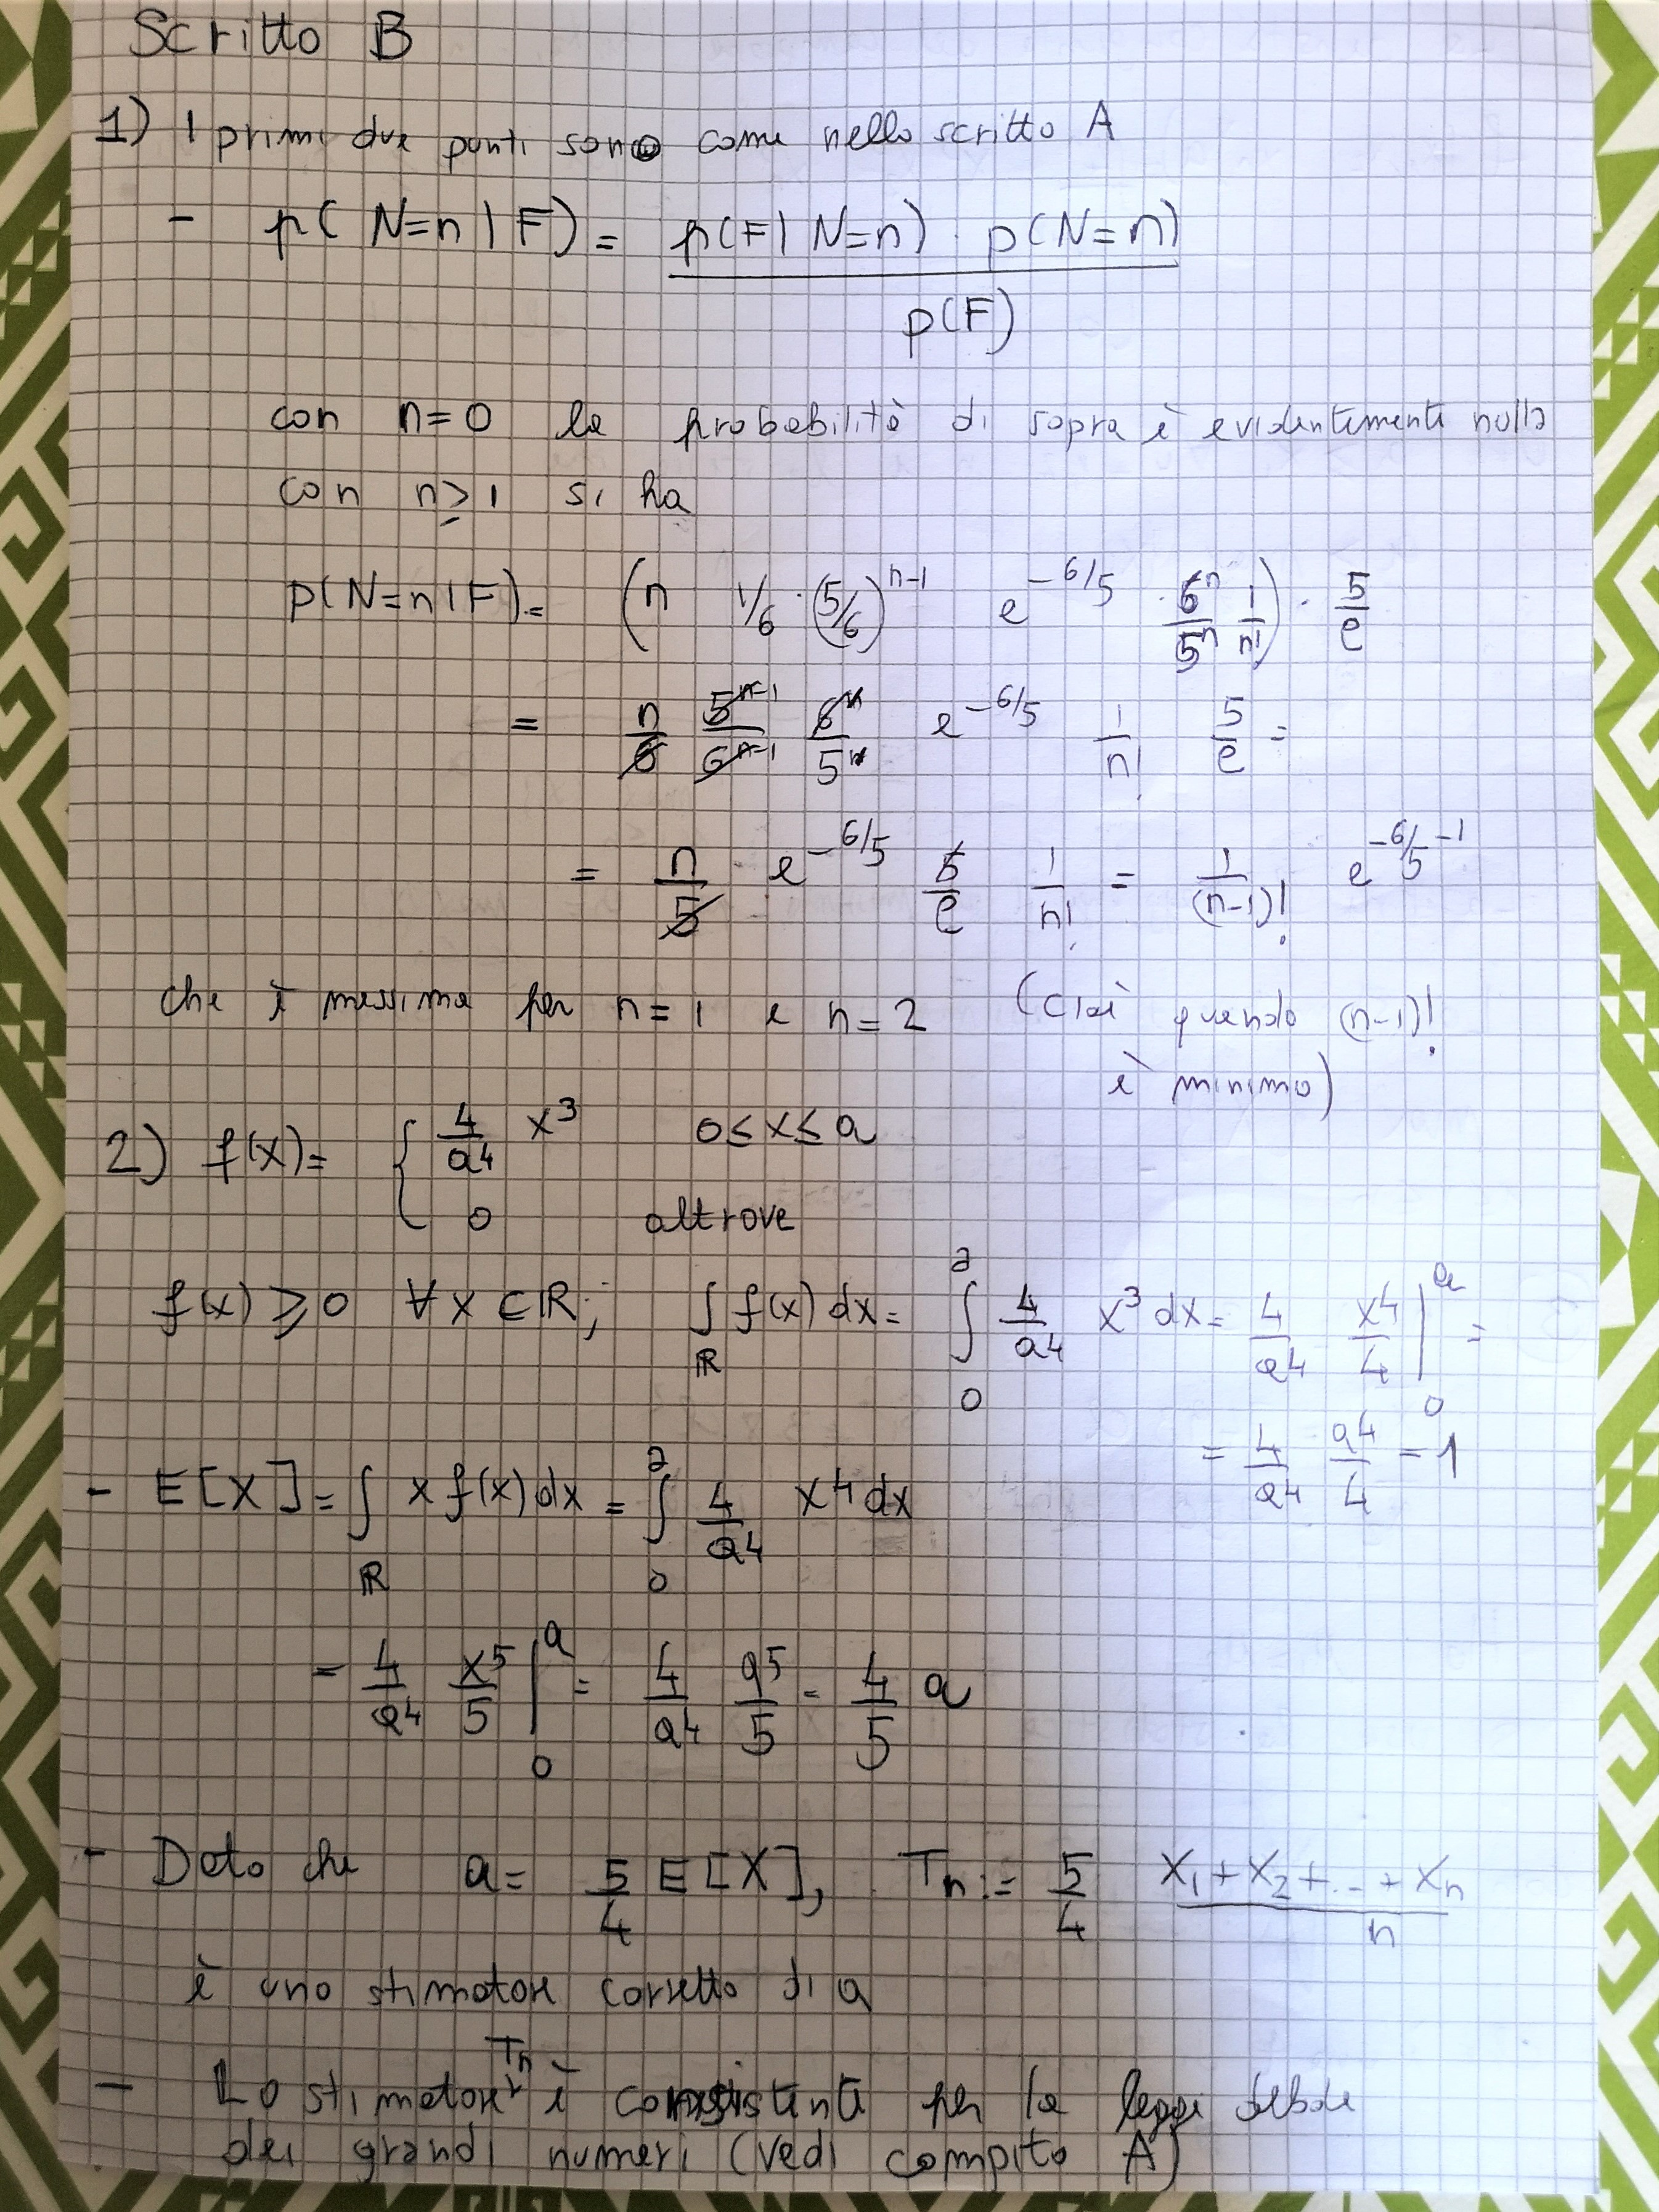 Scritto B
1) I primi due punti sono come nello scritto A
- p(N=n|F) = p(F|N=n) · p(N=n) / p(F)
con n=0 la probabilità di sopra è evidentemente nulla
con n≥1 si ha
p(N=n|F) = (n 1/6 · (5/6)^{n-1} e^{-6/5} · 6^n/5^n 1/n!) · 5/e
= n/6 5^{n-1}/6^{n-1} 6^n/5^n e^{-6/5} 1/n! 5/e =
= n/5 · e^{-6/5} 5/e 1/n! = 1/(n-1)! e^{-6/5 -1}
che è massima per n=1 e n=2 (cioè quando (n-1)!
è minimo)
2) f(x) = { 4/a^4 x^3 0≤x≤a
0 altrove
f(x) ≥ 0 ∀x∈ℝ; ∫_ℝ f(x)dx = ∫_0^a 4/a^4 x^3 dx = 4/a^4 x^4/4 |_0^a =
= 4/a^4 a^4/4 = 1
- E[X] = ∫_ℝ x f(x)dx = ∫_0^a 4/a^4 x^4 dx
= 4/a^4 x^5/5 |_0^a = 4/a^4 a^5/5 = 4/5 a
- Dato che a = 5/4 E[X], T_n := 5/4 X_1+X_2+...+X_n / n
è uno stimatore corretto di a
- Lo stimatore T_n è consistente per la legge debole
dei grandi numeri (vedi compito A)